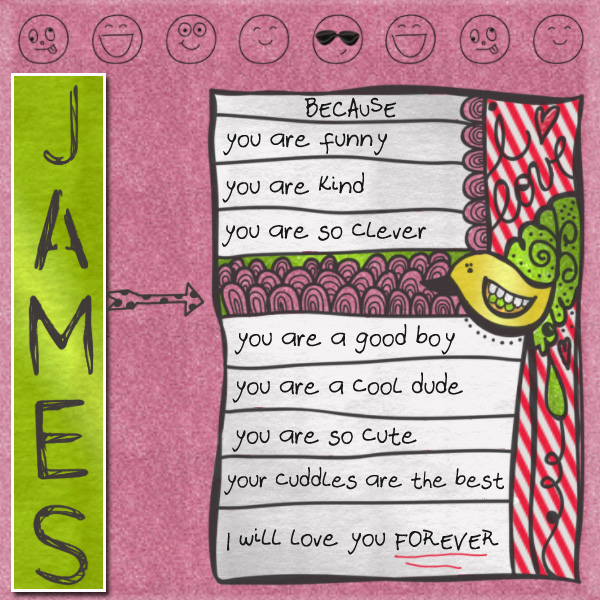 JAMES
I
love
BECAUSE
you are funny
you are kind
you are so clever
you are a good boy
you are a cool dude
you are so cute
your cuddles are the best
I will love you FOREVER